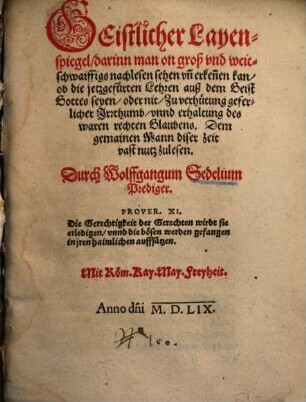 GEistlicher Layen-
spiegel/ darinn man on groß vnd weit-
schwaiffigs nachlesen sehen vñ erkeñen kan/
ob die jetzgefürten Lehren auß dem Geist
Gottes seyen/ oder nit/ Zu verhütung gefer-
licher Jrrthumb/ vnnd erhaltung des
waren rechten Glaubens. Dem
gemainen Mann diser zeit
vast nutz zulesen.
Durch Wolffgangum Sedelium
Prediger.
PROVER. XI.
Die Gerechtigkeit der Gerechten wirdt sie
erledigen/ vnnd die bösen werden gefangen
in jren haimlichen auffsätzen.
Mit Röm. Kay. May. Freyheit.
Anno dñi M. D. LIX.